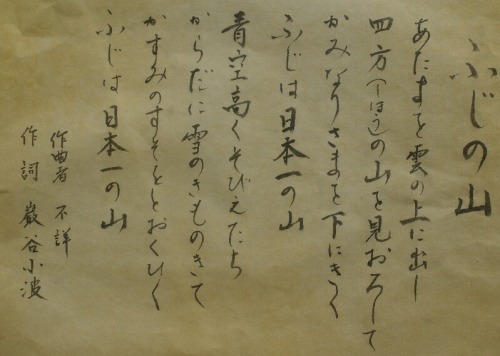 ふじの山
あたまを雲の上に出し
四方(しほう)の山を見おろして
かみなりさまを下にきく
ふじは日本一の山
青空高くそびえたち
からだに雪のきものきて
かすみのすそをとおくひく
ふじは日本一の山
作曲者 不詳
作詞 巌谷小波